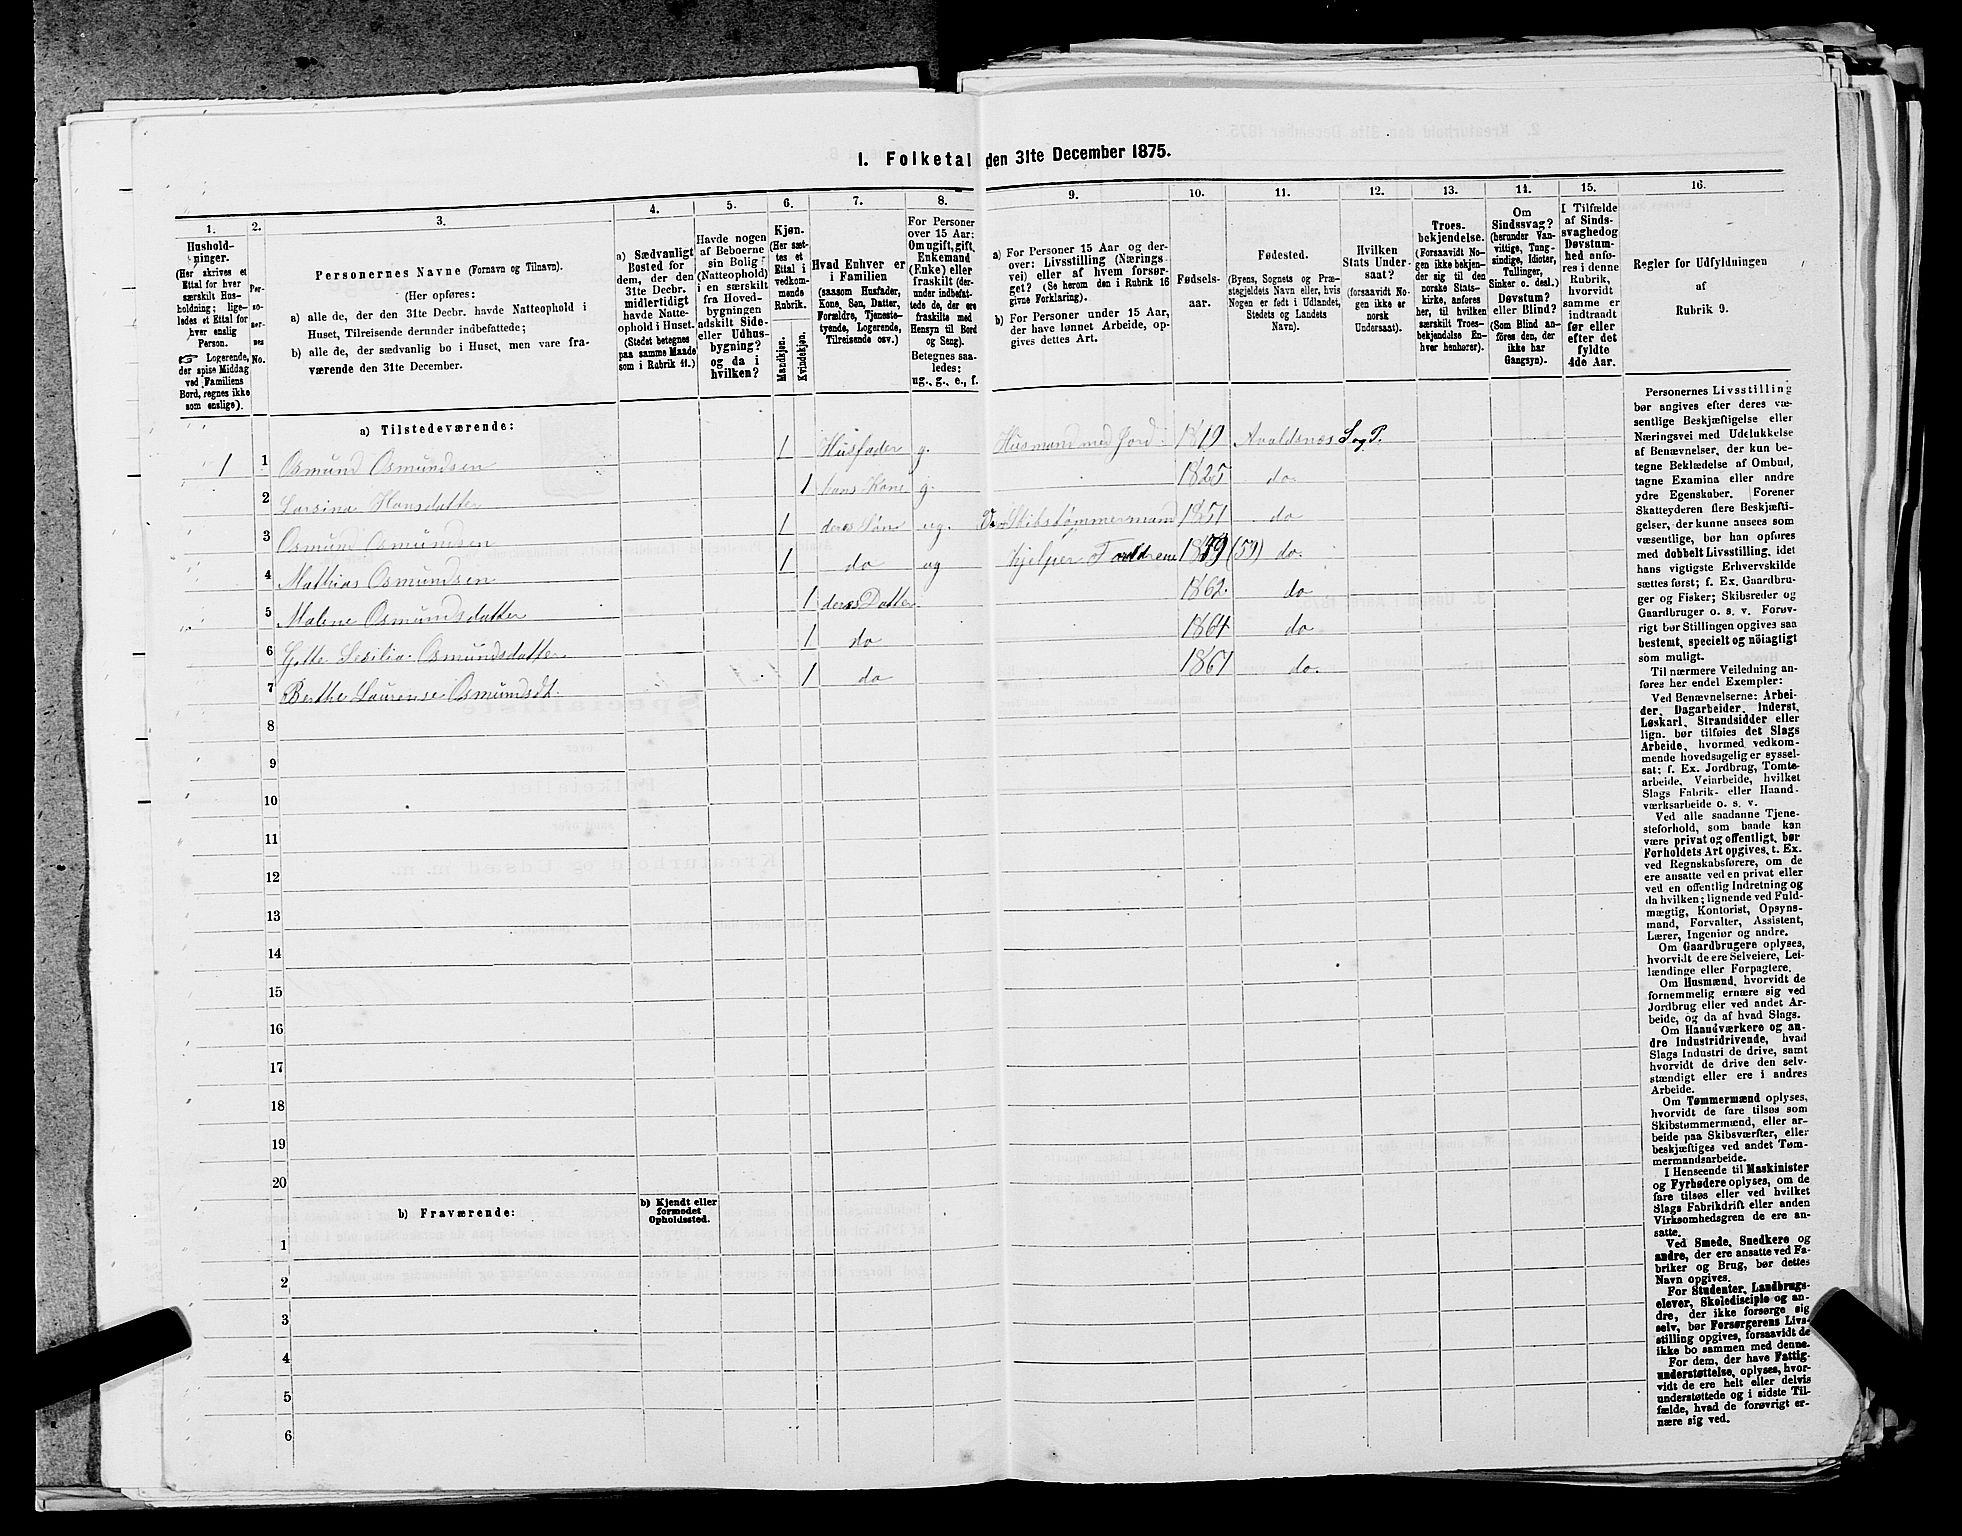 1. Folketal den 31te December 1875.
1.
Hushold-
ninger.
(Her skrives et
Ettal for hver
særskilt Hus-
holdning; lige-
ledes et Ettal for
hver enslig
Person.
☞ Logerende,
der spise Middag
ved Familiens
Bord, regnes ikke
som enslige).
2.
Per-
so-
ner-
nes
No.
3.
Personernes Navne (Fornavn og Tilnavn).
(Her opføres:
a) alle de, der den 31te Decbr. havde Natteophold i
Huset, Tilreisende derunder indbefattede;
b) alle de, der sædvanlig bo i Huset, men vare fra-
værende den 31te December.
4.
a) Sædvanligt
Bosted for
dem, der den
31te Decbr.
midlertidigt
havde Natte-
ophold i Huset.
(Stedet betegnes
paa samme Maade
som i Rubrik 11.)
5.
Havde nogen
af Beboerne
sin Bolig
(Natteophold)
i en særskilt
fra Hoved-
bygningen
adskilt Side-
eller Udhus-
bygning?
og da i
hvilken?
6.
Kjøn.
(Her sæt-
tes et
Ettal i
vedkom-
mende
Rubrik.
Mandkjøn.
Kvindekjøn.
7.
Hvad Enhver er
i Familien
(saasom Husfader,
Kone, Søn, Datter,
Forældre, Tjeneste-
tyende, Logerende,
Tilreisende osv.)
8.
For Personer
over 15 Aar:
Om ugift, gift,
Enkemand
(Enke) eller
fraskilt (der-
under indbefat-
tede de, der ere
fraskilte med
Hensyn til Bord
og Seng).
Betegnes saa-
ledes:
ug., g., e., f.
9.
a) For Personer 15 Aar og der-
over: Livsstilling (Nærings-
vei) eller af hvem forsør-
get? (Se herom den i Rubrik 16
givne Forklaring).
b) For Personer under 15 Aar,
der have lønnet Arbeide, op-
gives dettes Art.
10.
Fødsels-
aar.
11.
Fødested.
(Byens, Sognets og Præ-
stegjeldets Navn eller, hvis
Nogen er født i Udlandet,
Stedets og Landets
Navn).
12.
Hvilken
Stats Under-
saat?
(forsaavidt No-
gen ikke er
norsk
Undersaat).
13.
Troes-
bekjendelse.
(Forsaavidt No-
gen ikke bekjen-
der sig til den
norske Stats-
kirke, anføres
her, til hvilken
særskilt Troes-
bekjendelse En-
hver henhører).
14.
Om
Sindssvag?
(herunder Van-
vittige, Tung-
sindige, Idioter,
Tullinger,
Sinker o. desl.)
Døvstum?
eller Blind?
(Som Blind an-
føres den, der
ikke har
Gangsyn).
15.
I Tilfælde
af Sinds-
svaghed og
Døvstum-
hed anfø-
res i denne
Rubrik,
hvorvidt
samme er
indtraadt
før eller
efter det
fyldte
4de Aar.
16.
Regler for Udfyldningen
af
Rubrik 9.
a) Tilstedeværende:
1 1 Osmund Osmundsen 1 Husfader g. Husmand med Jord 1819 Avaldsnæs S og P.
2 Larsina Hansdatter 1 hans Kone g. 1825 do
3 Osmund Osmundsen 1 deres Søn ug. Skibstømmermand 1851 do
4 Mathias Osmundsen 1 do ug Hjelper Forældrene 1859 (59) do.
5 Malene Osmundsdatter 1 deres Datter 1862 do
6 Gjette Sesilia Osmundsdatter 1 do 1864 do
7 Berthe Laurense Osmundsdt. 1 do 1867 do.
8
9
10
11
12
13
14
15
16
17
18
19
20
b) Fraværende:
b) Kjendt eller
formodet
Opholdssted.
1
2
3
4
5
6
Personernes Livsstilling
bør angives efter deres væ-
sentlige Beskjæftigelse eller
Næringsvei med Udelukkelse
af Benævnelser, der kun be-
tegne Beklædelse af Ombud,
tagne Examina eller andre
ydre Egenskaber. Forener
Skatteyderen flere Beskjæfti-
gelser, der kunne ansees som
væsentlige, bør han opføres
med dobbelt Livsstilling, idet
hans vigtigste Erhvervskilde
sættes først; f. Ex. Gaardbru-
ger og Fisker; Skibsreder og
Gaardbruger o. s. v. Forøv-
rigt bør Stillingen opgives saa
bestemt, specielt og nöiagtigt
som muligt.
Til nærmere Veiledning an-
føres her endel Exempler:
Ved Benævnelserne: Arbei-
der, Dagarbeider, Inderst,
Løskarl, Strandsidder eller
lign. bør tilføies det Slags
Arbeide, hvormed vedkom-
mende hovedsagelig er syssel-
sat; f. Ex. Jordbrug, Tomte-
arbeide, Veiarbeide, hvilket
Slags Fabrik- eller Haand-
værksarbeide o. s. v.
Ved alle saadanne Tjene-
steforhold, som baade kan
være privat og offentligt, bør
Forholdets Art opgives, t. Ex.
ved Regnskabsførere, om de
ere ansatte ved en privat eller
ved en offentlig Indretning og
da hvilken; lignende ved Fuld-
mægtig, Kontorist, Opsyns-
mand, Forvalter, Assistent,
Lærer, Ingeniør og andre.
Om Gaardbrugere oplyses,
hvorvidt de ere Selveiere, Lei-
lændinge eller Forpagtere.
Om Husmænd, hvorvidt de
fornemmelig ernære sig ved
Jordbrug eller ved andet Ar-
beide, og da af hvad Slags.
Om Haandværkere og an-
dre Industridrivende, hvad
Slags Industri de drive, samt
hvorvidt de drive den selv-
stændigt eller ere i andres
Arbeide.
Om Tømmermænd oplyses,
hvorvidt de fare tilsøs som
Skibstømmermænd, eller ar-
beide paa Skibsværfter, eller
beskjæftiges ved andet Tøm-
mermandsarbeide.
I Henseende til Maskinister
og Fyrbødere oplyses, om de
fare tilsøs eller ved hvilket
Slags Fabrikdrift eller anden
Virksomhedsgren de ere an-
satte.
Ved Smede, Snedkere og
andre, der ere ansatte ved Fa-
briker og Brug, bør dettes
Navn opgives.
For Studenter, Landbrugs-
elever, Skoledisciple og an-
dre, der ikke forsørge sig
selv, bør Forsørgerens Livs-
stilling opgives, forsaavidt de
ikke bo sammen med denne.
For dem, der have Fattig-
understøttelse, oplyses, hvor-
vidt de ere helt eller delvis
understøttede og i sidste Til-
fælde, hvad de forøvrigt er-
nære sig ved.